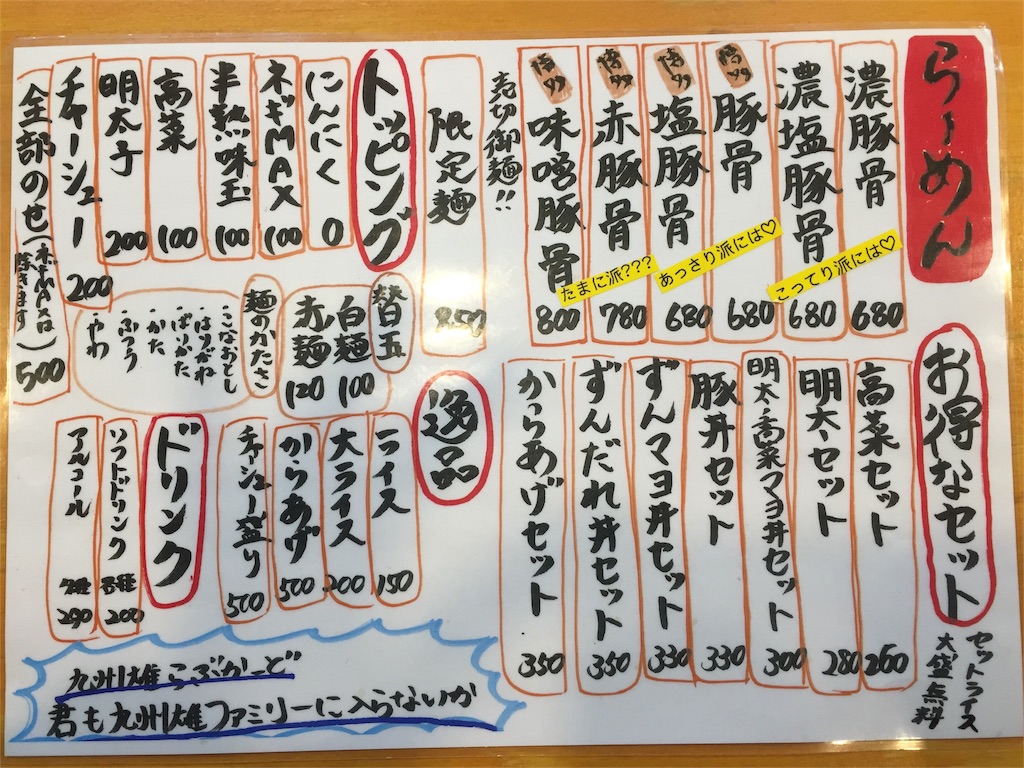 らーめん
濃豚骨 680
濃塩豚骨 680
こってり派には♡
豚骨 680
塩豚骨 680
あっさり派には♡
赤豚骨 780
味噌豚骨 800
たまに派???
売切御麺!!
限定麺 850
トッピング
にんにく 0
ネギMAX 100
半熟味玉 100
高菜 100
明太子 200
チャーシュー 200
全部のせ(ネギMAXは除きます) 500
替玉
白麺 100
赤麺 120
麺のかたさ
・こなおとし
・はりがね
・ばりかた
・かた
・ふつう
・やわ
お得なセット
セットライス
大盛無料
高菜セット 260
明太セット 280
明太高菜マヨ丼セット 300
豚丼セット 330
ずんマヨ丼セット 330
ずんだれ丼セット 350
からあげセット 350
逸品
ライス 150
大ライス 200
からあげ 500
チャーシュー盛り 500
ドリンク
ソフトドリンク 各種 200
アルコール 各種 290
九州雄こぶかーど
君も九州雄ファミリーに入らないか